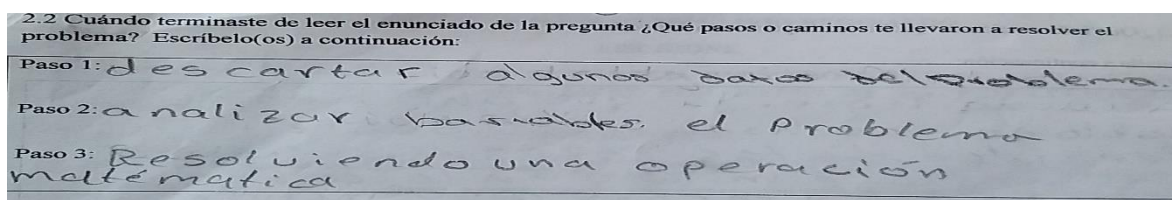 2.2 Cuándo terminaste de leer el enunciado de la pregunta ¿Qué pasos o caminos te llevaron a resolver el
problema? Escríbelo(os) a continuación:
Paso 1: descartar algunos datos del problema.
Paso 2: analizar bariables. el problema
Paso 3: Resolviendo una operación
matématica